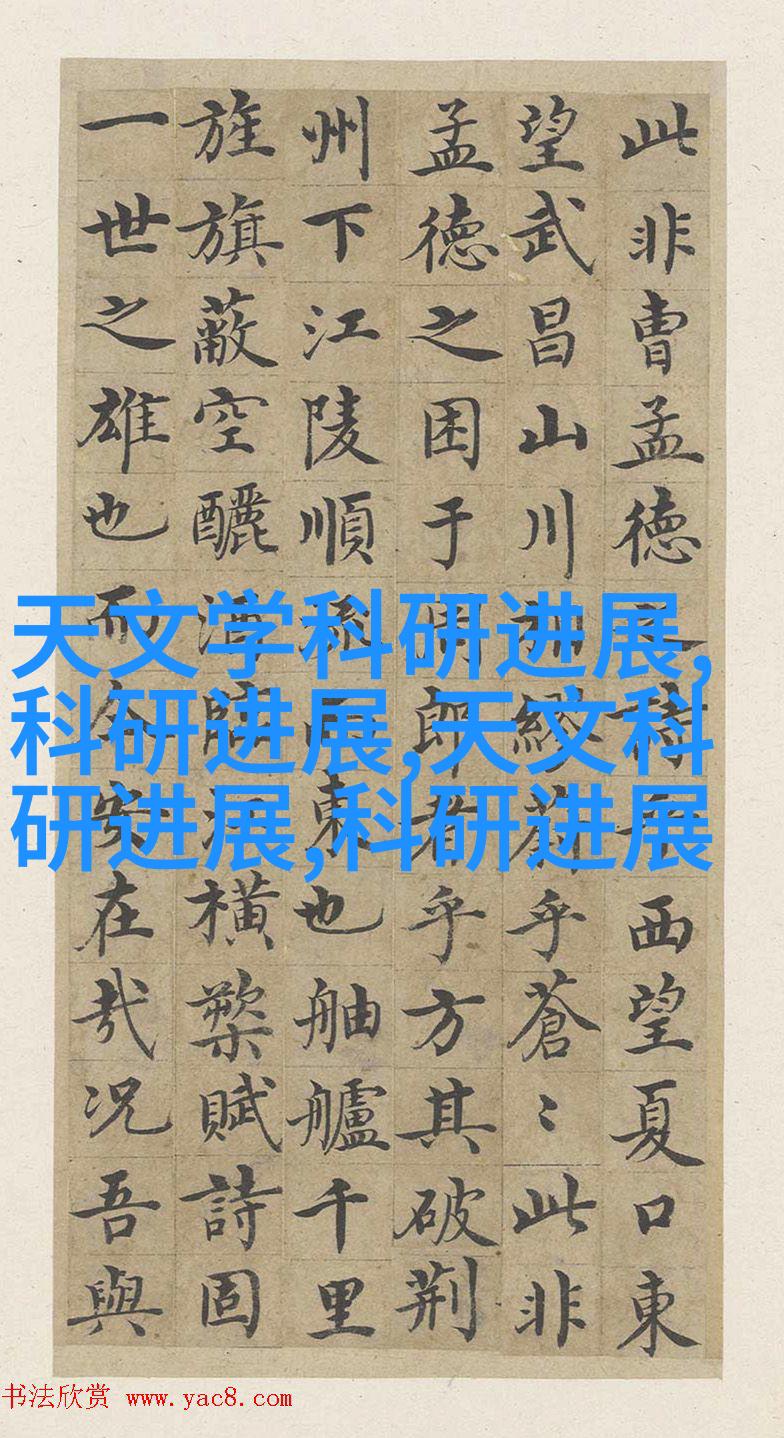 此非曹孟德之詩乎西望夏口東
望武昌山川相繆欝乎蒼〻此非
孟德之困于周郎者乎方其破荆
州下江陵順流而東也舳艫千里
旌旗蔽空釃酒臨江横槊賦詩固
一世之雄也而今安在哉况吾與
天文学科研进展,
科研进展,天文科
研进展,科研进展
书法欣赏 www.yac8.com